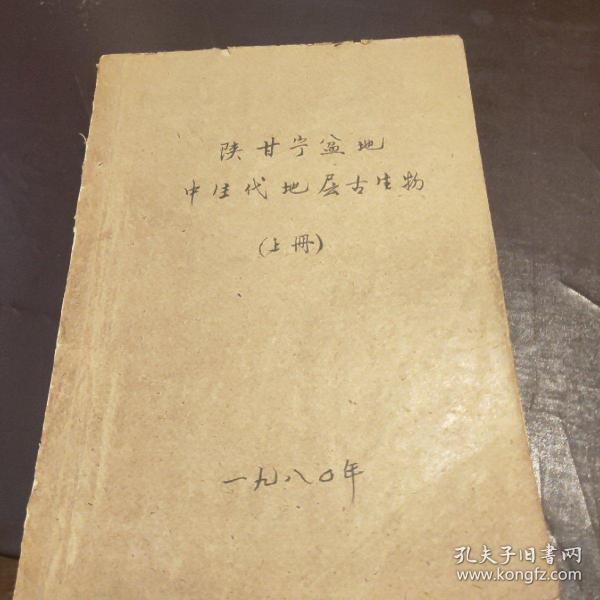 陕甘宁盆地
中生代地层古生物
(上冊)
一九八〇年
孔夫子旧書网
www.kongfz.com